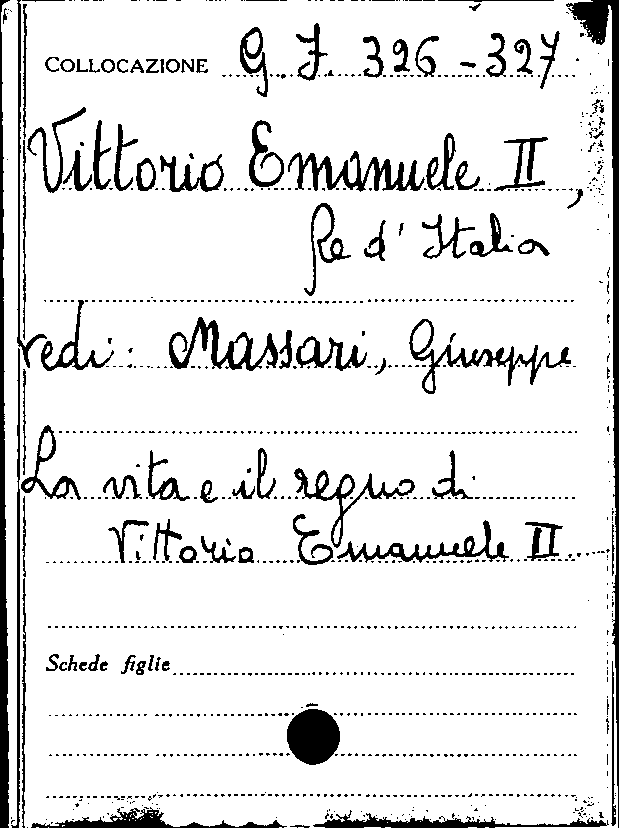 COLLOCAZIONE G. J. 326-327
Vittorio Emanuele II,
Re d'Italia
vedi: Massari, Giuseppe
La vita e il regno di
Vittorio Emanuele II
Schede figlie